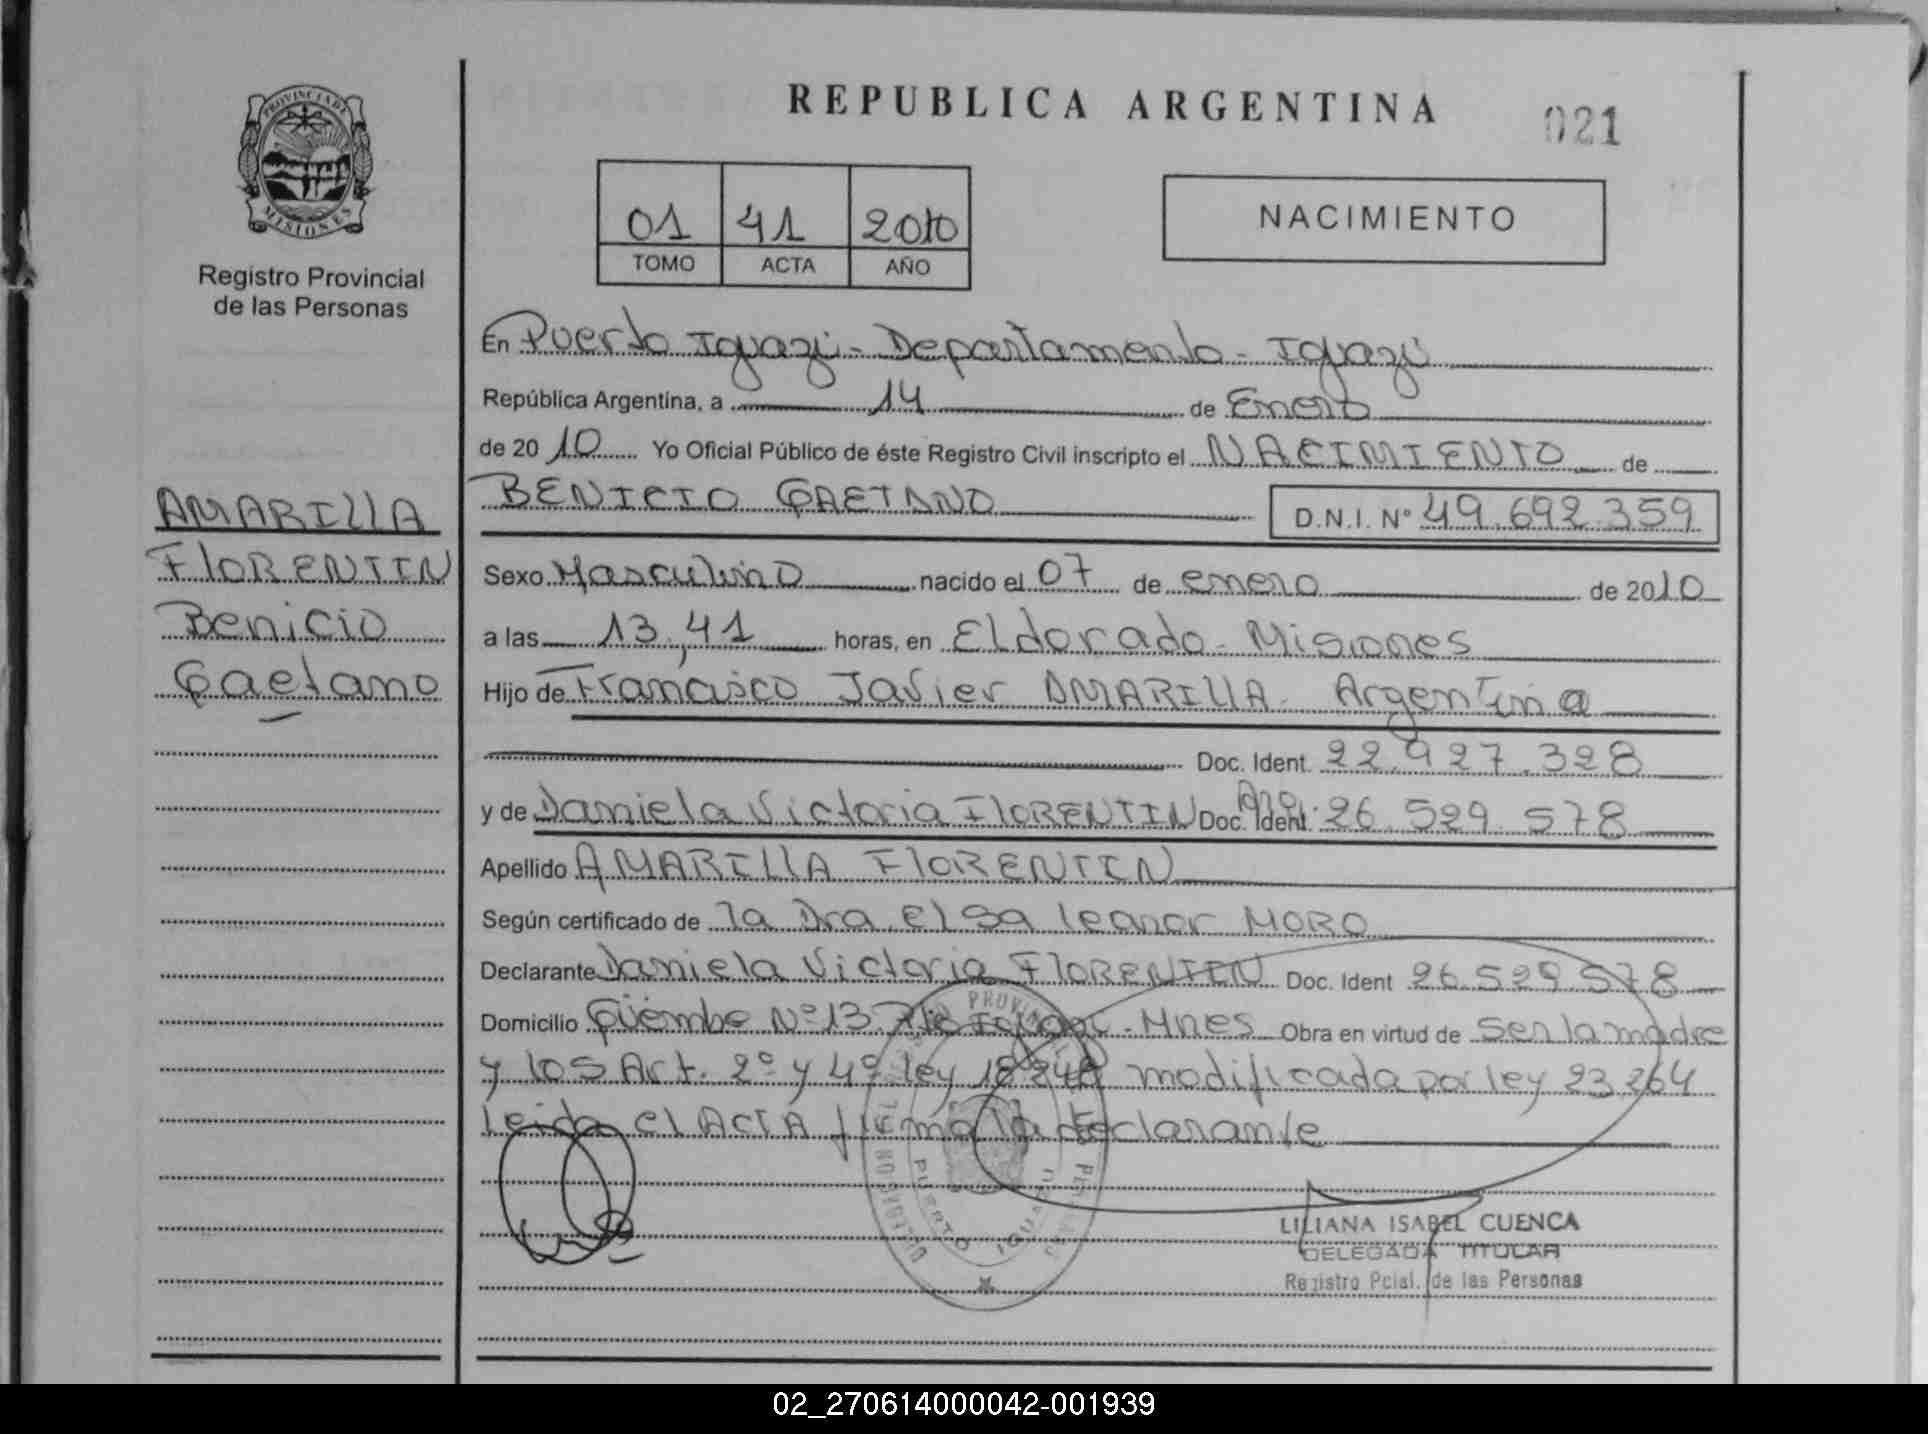 REPUBLICA ARGENTINA
021
PROVINCIA DE
MISIONES
Registro Provincial
de las Personas
01 41 2010
TOMO ACTA AÑO
NACIMIENTO
En Puerto Iguazú - Departamento - Iguazú
República Argentina, a 14 de Enero
de 20 10 Yo Oficial Público de éste Registro Civil inscripto el NACIMIENTO de
BENICIO GAETANO D.N.I. Nº 49.692.359
AMARILLA
FLORENTIN
Benicio
Gaetano
Sexo Masculino nacido el 07 de enero de 2010
a las 13,41 horas, en Eldorado - Misiones
Hijo de Francisco Javier AMARILLA - Argentina
Doc. Ident. 22.927.328
y de Daniela Victoria FLORENTIN Arg. Doc. Ident. 26.529.578
Apellido AMARILLA FLORENTIN
Según certificado de la Dra. Elsa Leanor MORO
Declarante Daniela Victoria FLORENTIN Doc. Ident 26.529.578
Domicilio Güembe Nº 137 Pto Iguazú - Mnes Obra en virtud de Ser la madre
y los Art. 2º y 4º ley 18248 modificada por ley 23264
Leida el ACTA firma la declarante
PUERTO IGUAZU
LILIANA ISABEL CUENCA
DELEGADA TITULAR
Registro Pcial. de las Personas
02_270614000042-001939